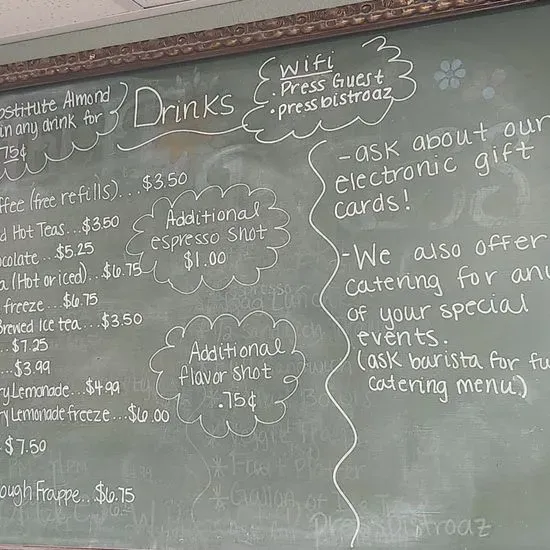 Drinks
Wifi
. Press Guest
. pressbistroaz
Almond
in any drink for
75¢
(free refills)...$3.50
Hot Teas...$3.50
...$5.25
(Hot or iced)...$6.75
freeze...$6.75
Ice tea...$3.50
...$7.25
...$3.99
Lemonade...$4.99
Lemonade freeze...$6.00
$7.50
Frappe...$6.75
Additional
espresso shot
$1.00
Additional
flavor shot
.75¢
-ask about our
electronic gift
cards!
-We also offer
catering for
of your special
events.
(ask barista for
catering menu)
pressbistroaz